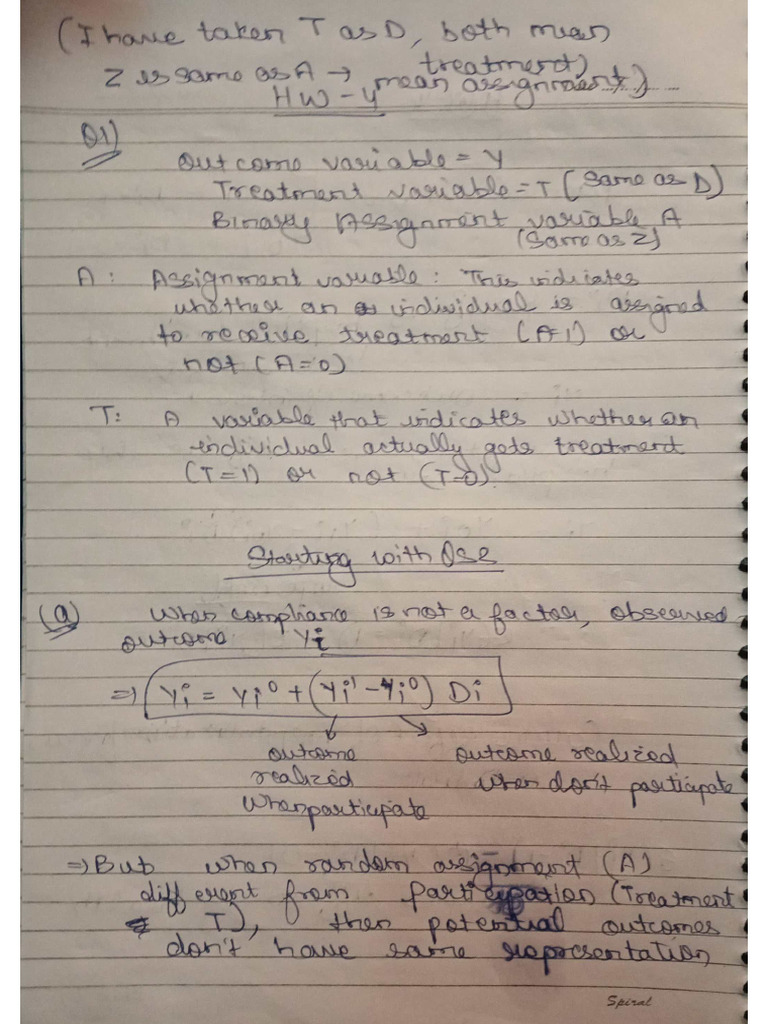 (I have taken T as D, both mean
treatment)
Z is same as A → mean assignment)
HW - 4
Q1)
Outcome variable = Y
Treatment variable = T (same as D)
Binary Assignment variable A
(same as Z)
A: Assignment variable: This indiates
whether an individual is assigned
to receive treatment (A=1) or
not (A=0)
T: A variable that indicates whether an
individual actually gets treatment
(T=1) or not (T=0).
Starting with Qse
(a) When compliance is not a factor, observed
outcome Yi
⇒ Yi = Yi⁰ + (Yi¹ - Yi⁰) Di
outcome outcome realized
realized when don't participate
when participate
⇒ But when random assignment (A)
different from participation (Treatment
T), then potential outcomes
don't have same representation
Spiral